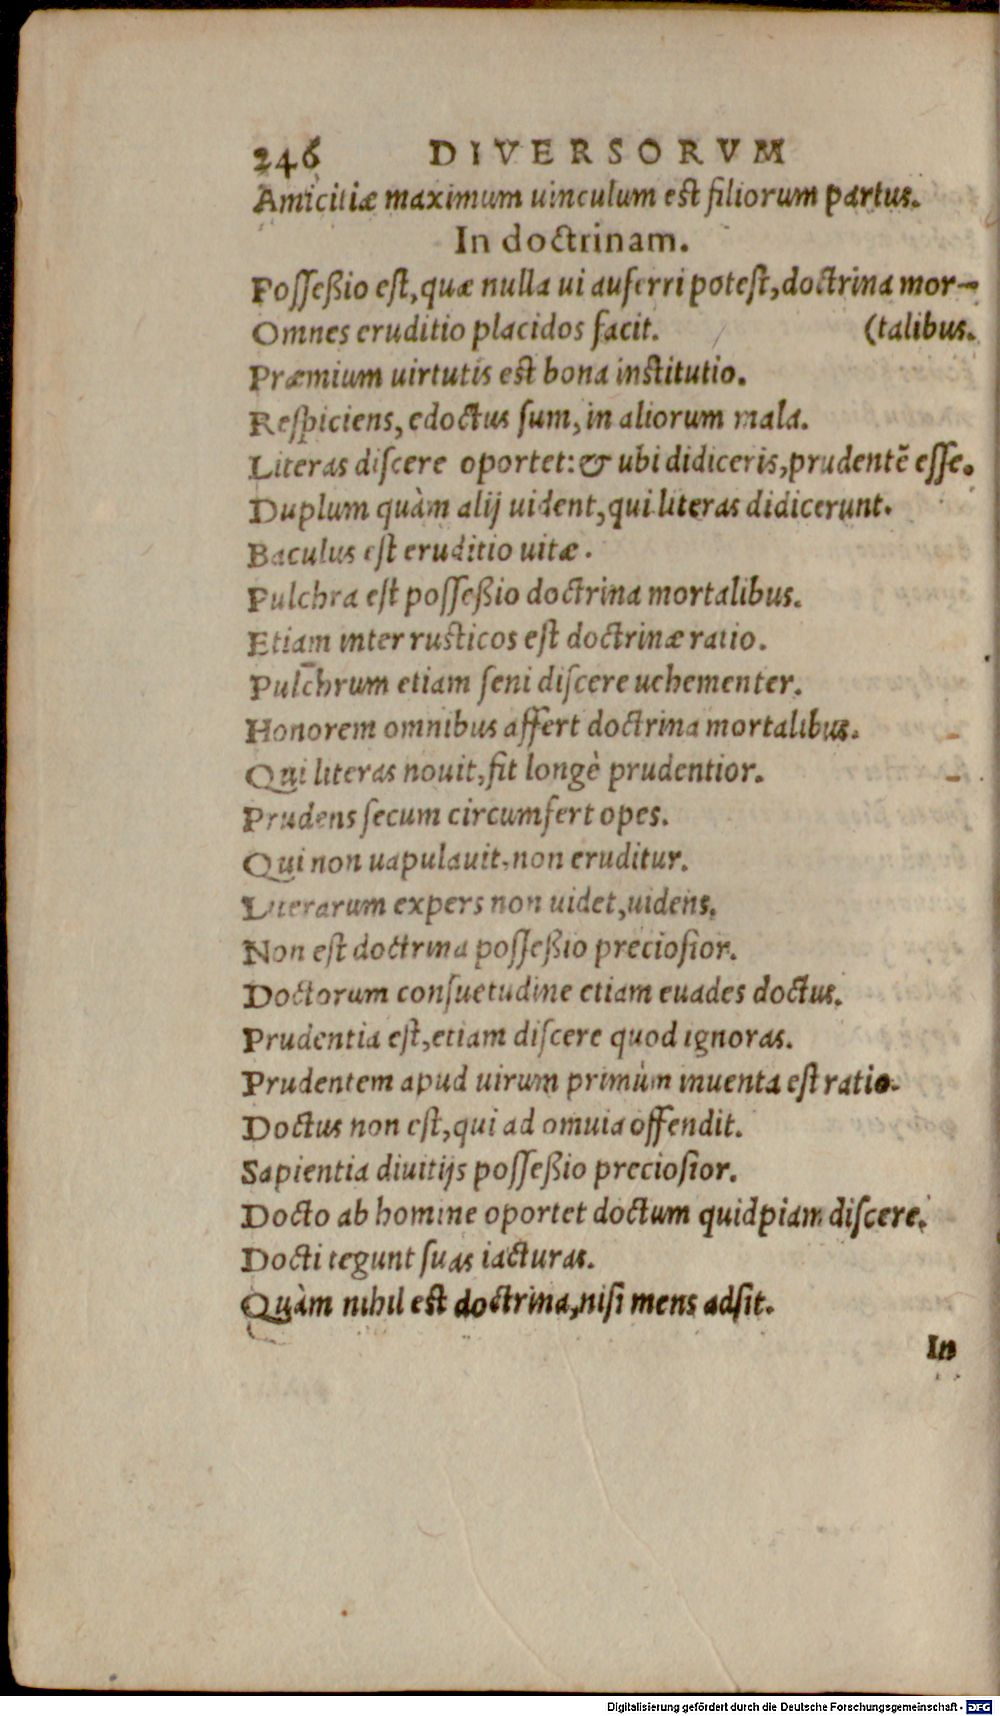 246 DIVERSORVM
Amicitiæ maximum uinculum est filiorum partus.
In doctrinam.
Possеßio est, quæ nulla ui auferri potest, doctrina mor-
Omnes eruditio placidos facit. (talibus.
Præmium uirtutis est bona institutio.
Respiciens, edoctus sum, in aliorum mala.
Literas discere oportet: & ubi didiceris, prudentē esse.
Duplum quàm alij uident, qui literas didicerunt.
Baculus est eruditio uitæ.
Pulchra est posseßio doctrina mortalibus.
Etiam inter rusticos est doctrinæ ratio.
Pulchrum etiam seni discere uehementer.
Honorem omnibus affert doctrina mortalibus.
Qui literas nouit, fit longè prudentior.
Prudens secum circumfert opes.
Qui non uapulauit, non eruditur.
Literarum expers non uidet, uidens.
Non est doctrina posseßio preciosior.
Doctorum consuetudine etiam euades doctus.
Prudentia est, etiam discere quod ignoras.
Prudentem apud uirum primùm inuenta est ratio.
Doctus non est, qui ad omuia offendit.
Sapientia diuitijs posseßio preciosior.
Docto ab homine oportet doctum quidpiam discere.
Docti tegunt suas iacturas.
Quàm nihil est doctrina, nisi mens adsit.
In
Digitalisierung gefördert durch die Deutsche Forschungsgemeinschaft - DFG